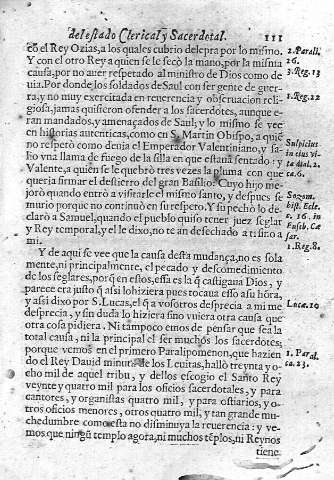 del estado Clerical y Sacerdotal. 111
cō el Rey Ozias, a los quales cubrio de lepra por lo mismo. 2. Parali.
Y con el otro Rey a quien se le secò la mano, por la misma 26.
causa, por no auer respetado al ministro de Dios como de 3. Reg. 13
uia. Por donde los soldados de Saul con ser gente de guer-
ra, y no muy exercitada en reuerencia y obseruacion reli- 1. Reg. 22
giosa, jamas quisieron ofender a los sacerdotes, aunque e-
ran mandados, y amenaçados de Saul; y lo mismo se vee
en historias autenticas, como en S. Martin Obispo, a quiē Sulpicius
no respetò como deuia el Emperador Valentiniano, y sa- in eius vi-
lio vna llama de fuego de la silla en que estaua sentado: y ta dial. 2.
Valente, a quien se le quebrò tres vezes la pluma con que ca. 6.
queria firmar el destierro del gran Basilio. Cuyo hijo me-
jorò quando entrò a visitarle el mismo santo, y despues se Sozom.
murio porque no continuò en su respeto. Y su pecho lo de- hist. Eccle.
clarò a Samuel, quando el pueblo quiso tener juez seglar c. 16. in
y Rey temporal, y el le dixo, no te an desechado a ti sino a Euseb. Cæ
mi. sar.
1. Reg. 8.
Y de aqui se vee que la causa desta mudança, no es sola
mente, ni principalmente, el pecado y descomedimiento
de los seglares, porq̄ en essos, essa es la q̄ castigana Dios, y
parece era justo q̄ assi lo hiziera pues tocaua esso a su hōra,
y assi dixo por S. Lucas, el q̄ a vosotros desprecia a mi me Lucæ. 10
desprecia, y sin duda lo hiziera sino vuiera otra causa que
otra cosa pidiera. Ni tampoco emos de pensar que sea la
total causa, ni la principal el ser muchos los sacerdotes;
porque vemos en el primero Paralipomenon, que hazien 1. Paral.
do el Rey Dauid minuta de los Leuitas, hallò treynta y o- ca. 23.
cho mil de aquel tribu, y dellos escogio el Santo Rey
veynte y quatro mil para los oficios sacerdotales, y para
cantores, y organistas quatro mil, y para ostiarios, y o-
tros oficios menores, otros quatro mil, y tan grande mu-
chedumbre como esta no disminuya la reuerencia: y ve-
mos que ningū templo agora, ni muchos tēplos, ni Reynos
tiene